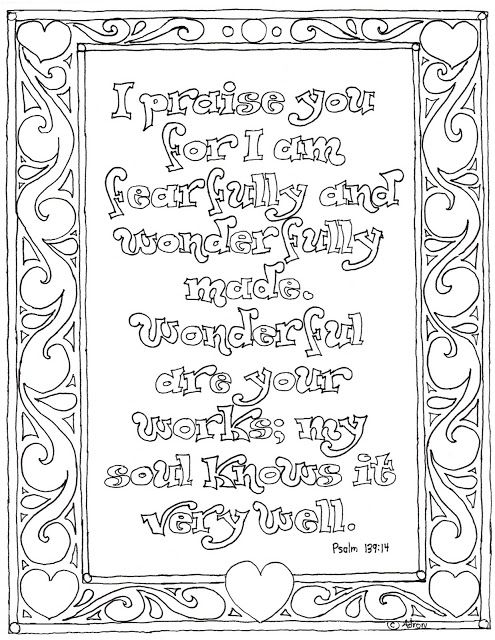 I praise you
for I am
fearfully and
wonderfully
made.
Wonderful
are your
works; my
soul knows it
very well.
Psalm 139:14
© Adron